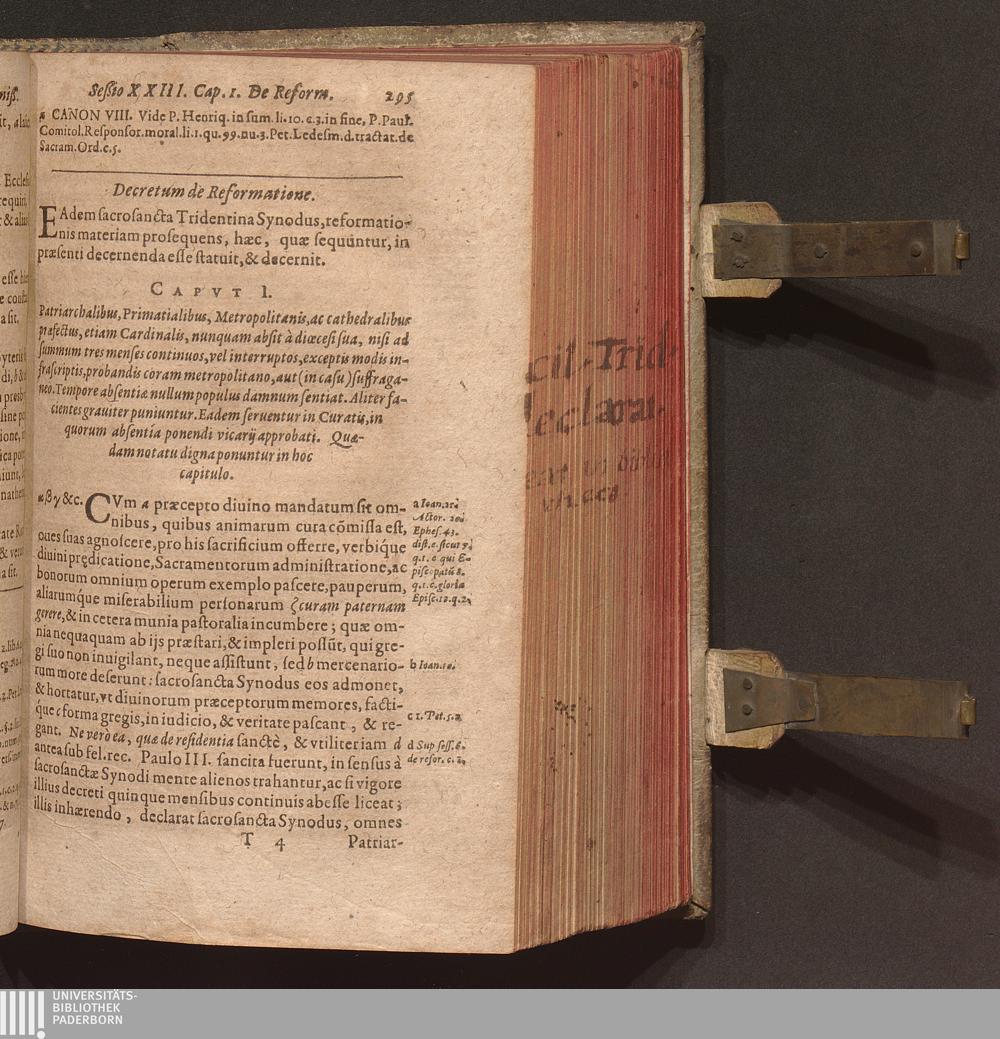 Seſſio XXIII. Cap. 1. De Reform. 295
CANON VIII. Vide P. Henriq. in ſum. li. 10. c. 3. in fine, P. Paul.
Comitol. Reſponſor. moral. li. 1. qu. 99. nu. 3. Pet. Ledeſm. d. tractat. de
Sacram. Ord. c. 5.
Decretum de Reformatione.
EAdem ſacroſancta Tridentina Synodus, reformatio-
nis materiam proſequens, hæc, quæ ſequuntur, in
præſenti decernenda eſſe ſtatuit, & decernit.
CAPVT I.
Patriarchalibus, Primatialibus, Metropolitanis, ac cathedralibus
præfectus, etiam Cardinalis, nunquam abſit à diœceſi ſua, niſi ad
ſummum tres menſes continuos, vel interruptos, exceptis modis in-
fraſcriptis, probandis coram metropolitano, aut (in caſu) ſuffraga-
neo. Tempore abſentiæ nullum populus damnum ſentiat. Aliter fa-
cientes grauiter puniuntur. Eadem ſeruentur in Curatis, in
quorum abſentia ponendi vicarij approbati. Quæ-
dam notatu digna ponuntur in hoc
capitulo.
α β γ &c. CVm a præcepto diuino mandatum ſit om-
nibus, quibus animarum cura cõmiſſa eſt,
oues ſuas agnoſcere, pro his ſacrificium offerre, verbiq́ue
diuini prędicatione, Sacramentorum adminiſtratione, ac
bonorum omnium operum exemplo paſcere, pauperum,
aliarumq́ue miſerabilium perſonarum ζ curam paternam
gerere, & in cetera munia paſtoralia incumbere; quæ om-
nia nequaquam ab ijs præſtari, & impleri poſſũt, qui gre-
gi ſuo non inuigilant, neque aſſiſtunt, ſed b mercenario-
rum more deſerunt: ſacroſancta Synodus eos admonet,
& hortatur, vt diuinorum præceptorum memores, facti-
q́ue c forma gregis, in iudicio, & veritate paſcant, & re-
gant. Ne verò ea, quæ de reſidentia ſanctè, & vtiliter iam d
antea ſub fel. rec. Paulo III. ſancita fuerunt, in ſenſus à
ſacroſanctæ Synodi mente alienos trahantur, ac ſi vigore
illius decreti quinque menſibus continuis abeſſe liceat;
illis inhærendo, declarat ſacroſancta Synodus, omnes
T 4 Patriar-
a Ioan. 21.
Actor. 20.
Epheſ. 4.
diſt. c. ſicut
q. 1. c qui E-
piſcopatũ 8.
q. 1. c. gloria
Epiſc. 12. q. 2.
b Ioan. 10.
c 1. Pet. 5.
d Sup ſeſſ. 6.
de refor. c. 1.
cil. Trid.
declarat.
UNIVERSITÄTS-
BIBLIOTHEK
PADERBORN